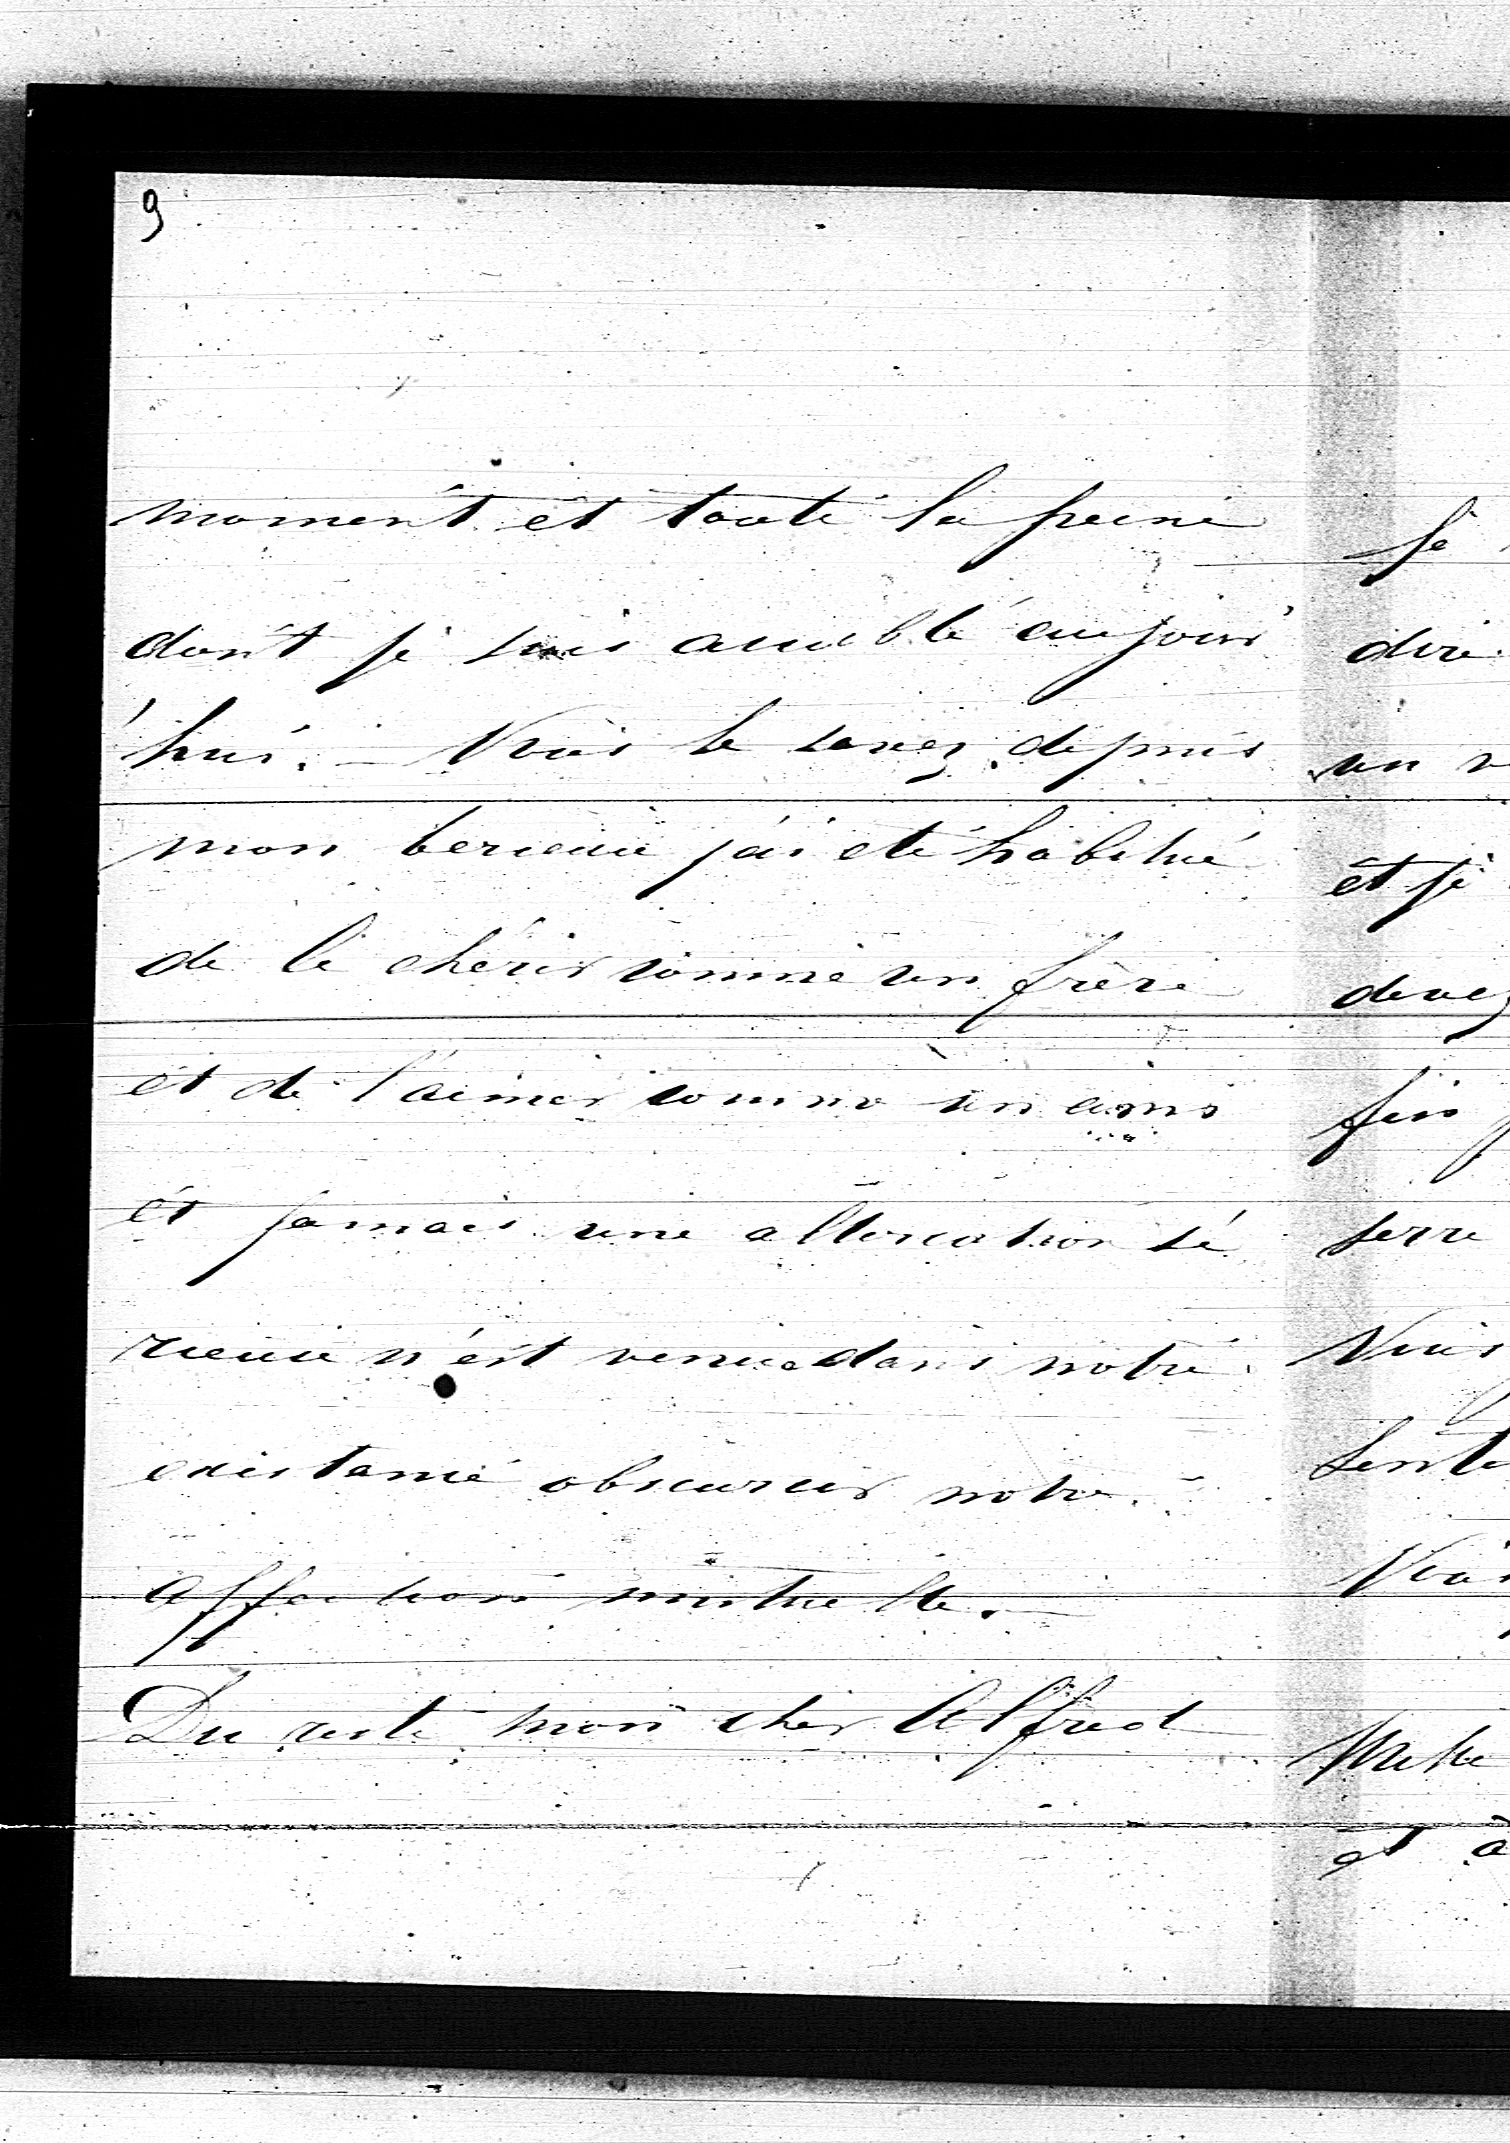 9
moment et toute la peine
dont je suis accablé aujour'
'hui. – Vous le savez, depuis
mon berceau j'ai été habitué
de le chérir comme un frère
et de l'aimer comme un ami
et jamais une altercation sé
rieuse n'est venue dans notre
existance obscurcir notre
affection mutuelle. –
Du reste mon cher Alfred
Je
dire
un
et je
devez
fin
serre
Vous
sent
et à